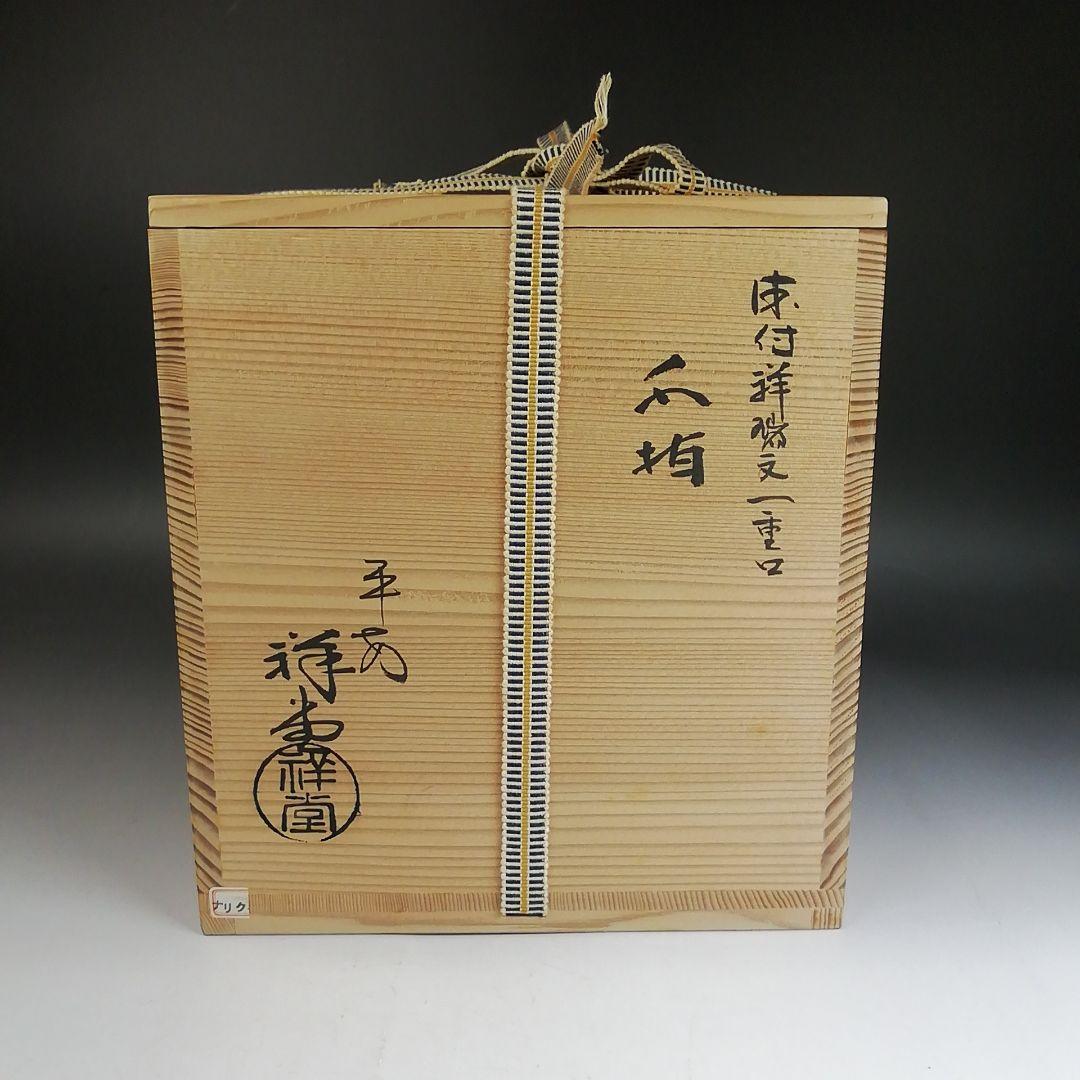 染付祥瑞文一重口
水指
平安
祥堂
祥堂
ナリク